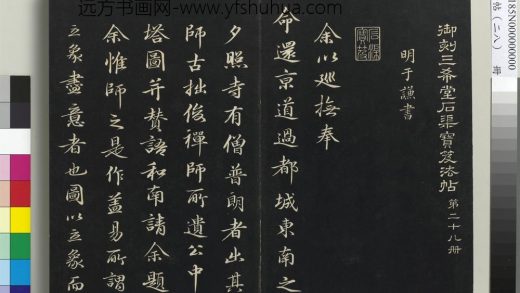 远方书画网-www.yfshuhua.com
御刻三希堂石渠寶笈法帖 第二十八册
明于謙書
余以巡撫奉
命還京道過都城東南之
夕照寺有僧普朗者出其
師古拙俊禪師所遺公中
塔圖并贊語和南請余題
余惟師之是作蓋易所謂
立象盡意者也圖以立象而
185N0000000000
帖(二八)